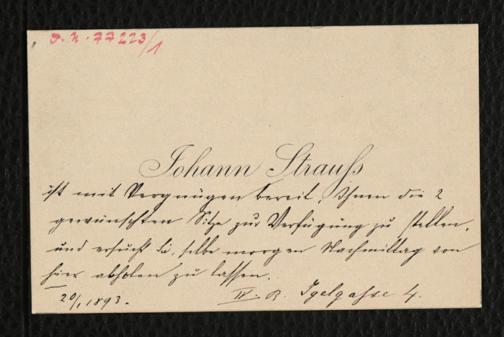 J. N. 77223/1
Johann Strauß
ist mit Vergnügen bereit, Ihnen die 2
gewünschten Sitze zur Verfügung zu stellen,
und ersucht Sie, selbe morgen Nachmittag von
hier abholen zu lassen.
20/1 1893. IV. B. Igelgasse 4.